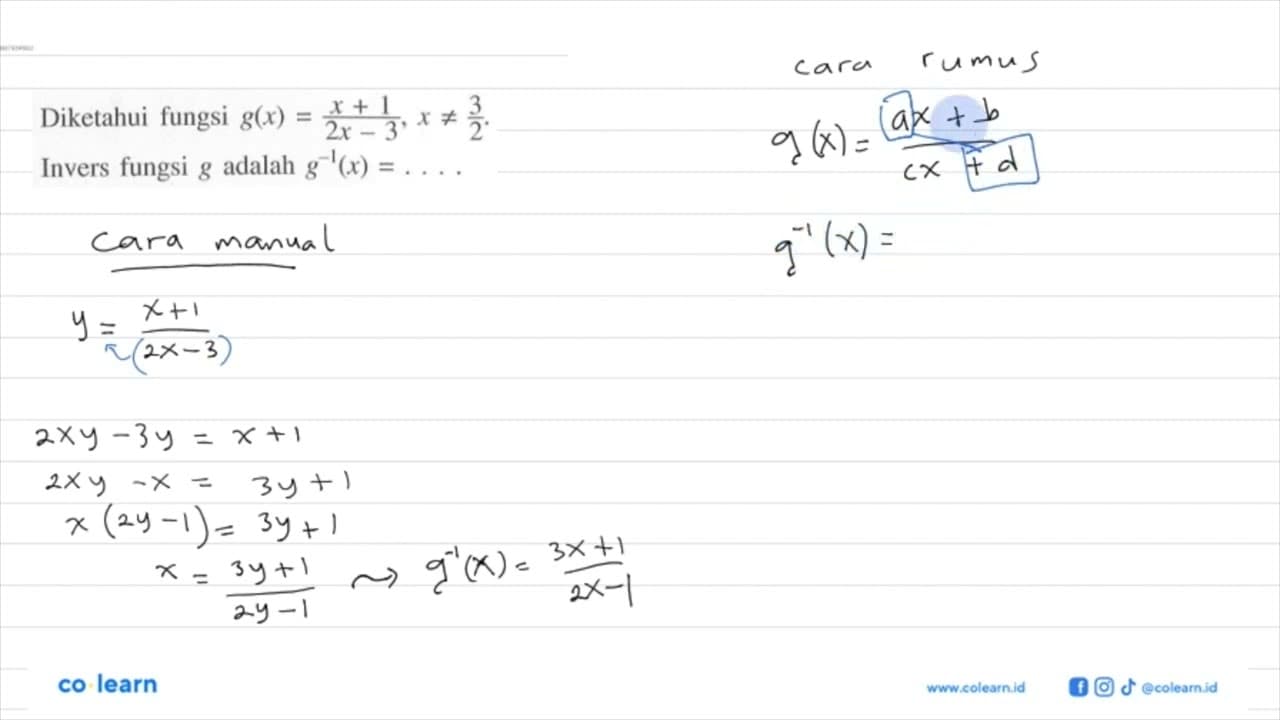 Diketahui fungsi g(x) = \frac{x + 1}{2x - 3}, x ≠ \frac{3}{2}.
Invers fungsi g adalah g⁻¹(x) = . . . .
cara manual
y = \frac{x+1}{(2x-3)}
2xy - 3y = x + 1
2xy - x = 3y + 1
x (2y - 1) = 3y + 1
x = \frac{3y+1}{2y-1} ⤳ g⁻¹(x) = \frac{3x+1}{2x-1}
cara rumus
g(x) = \frac{ax + b}{cx + d}
g⁻¹(x) =
co learn
www.colearn.id
@colearn.id